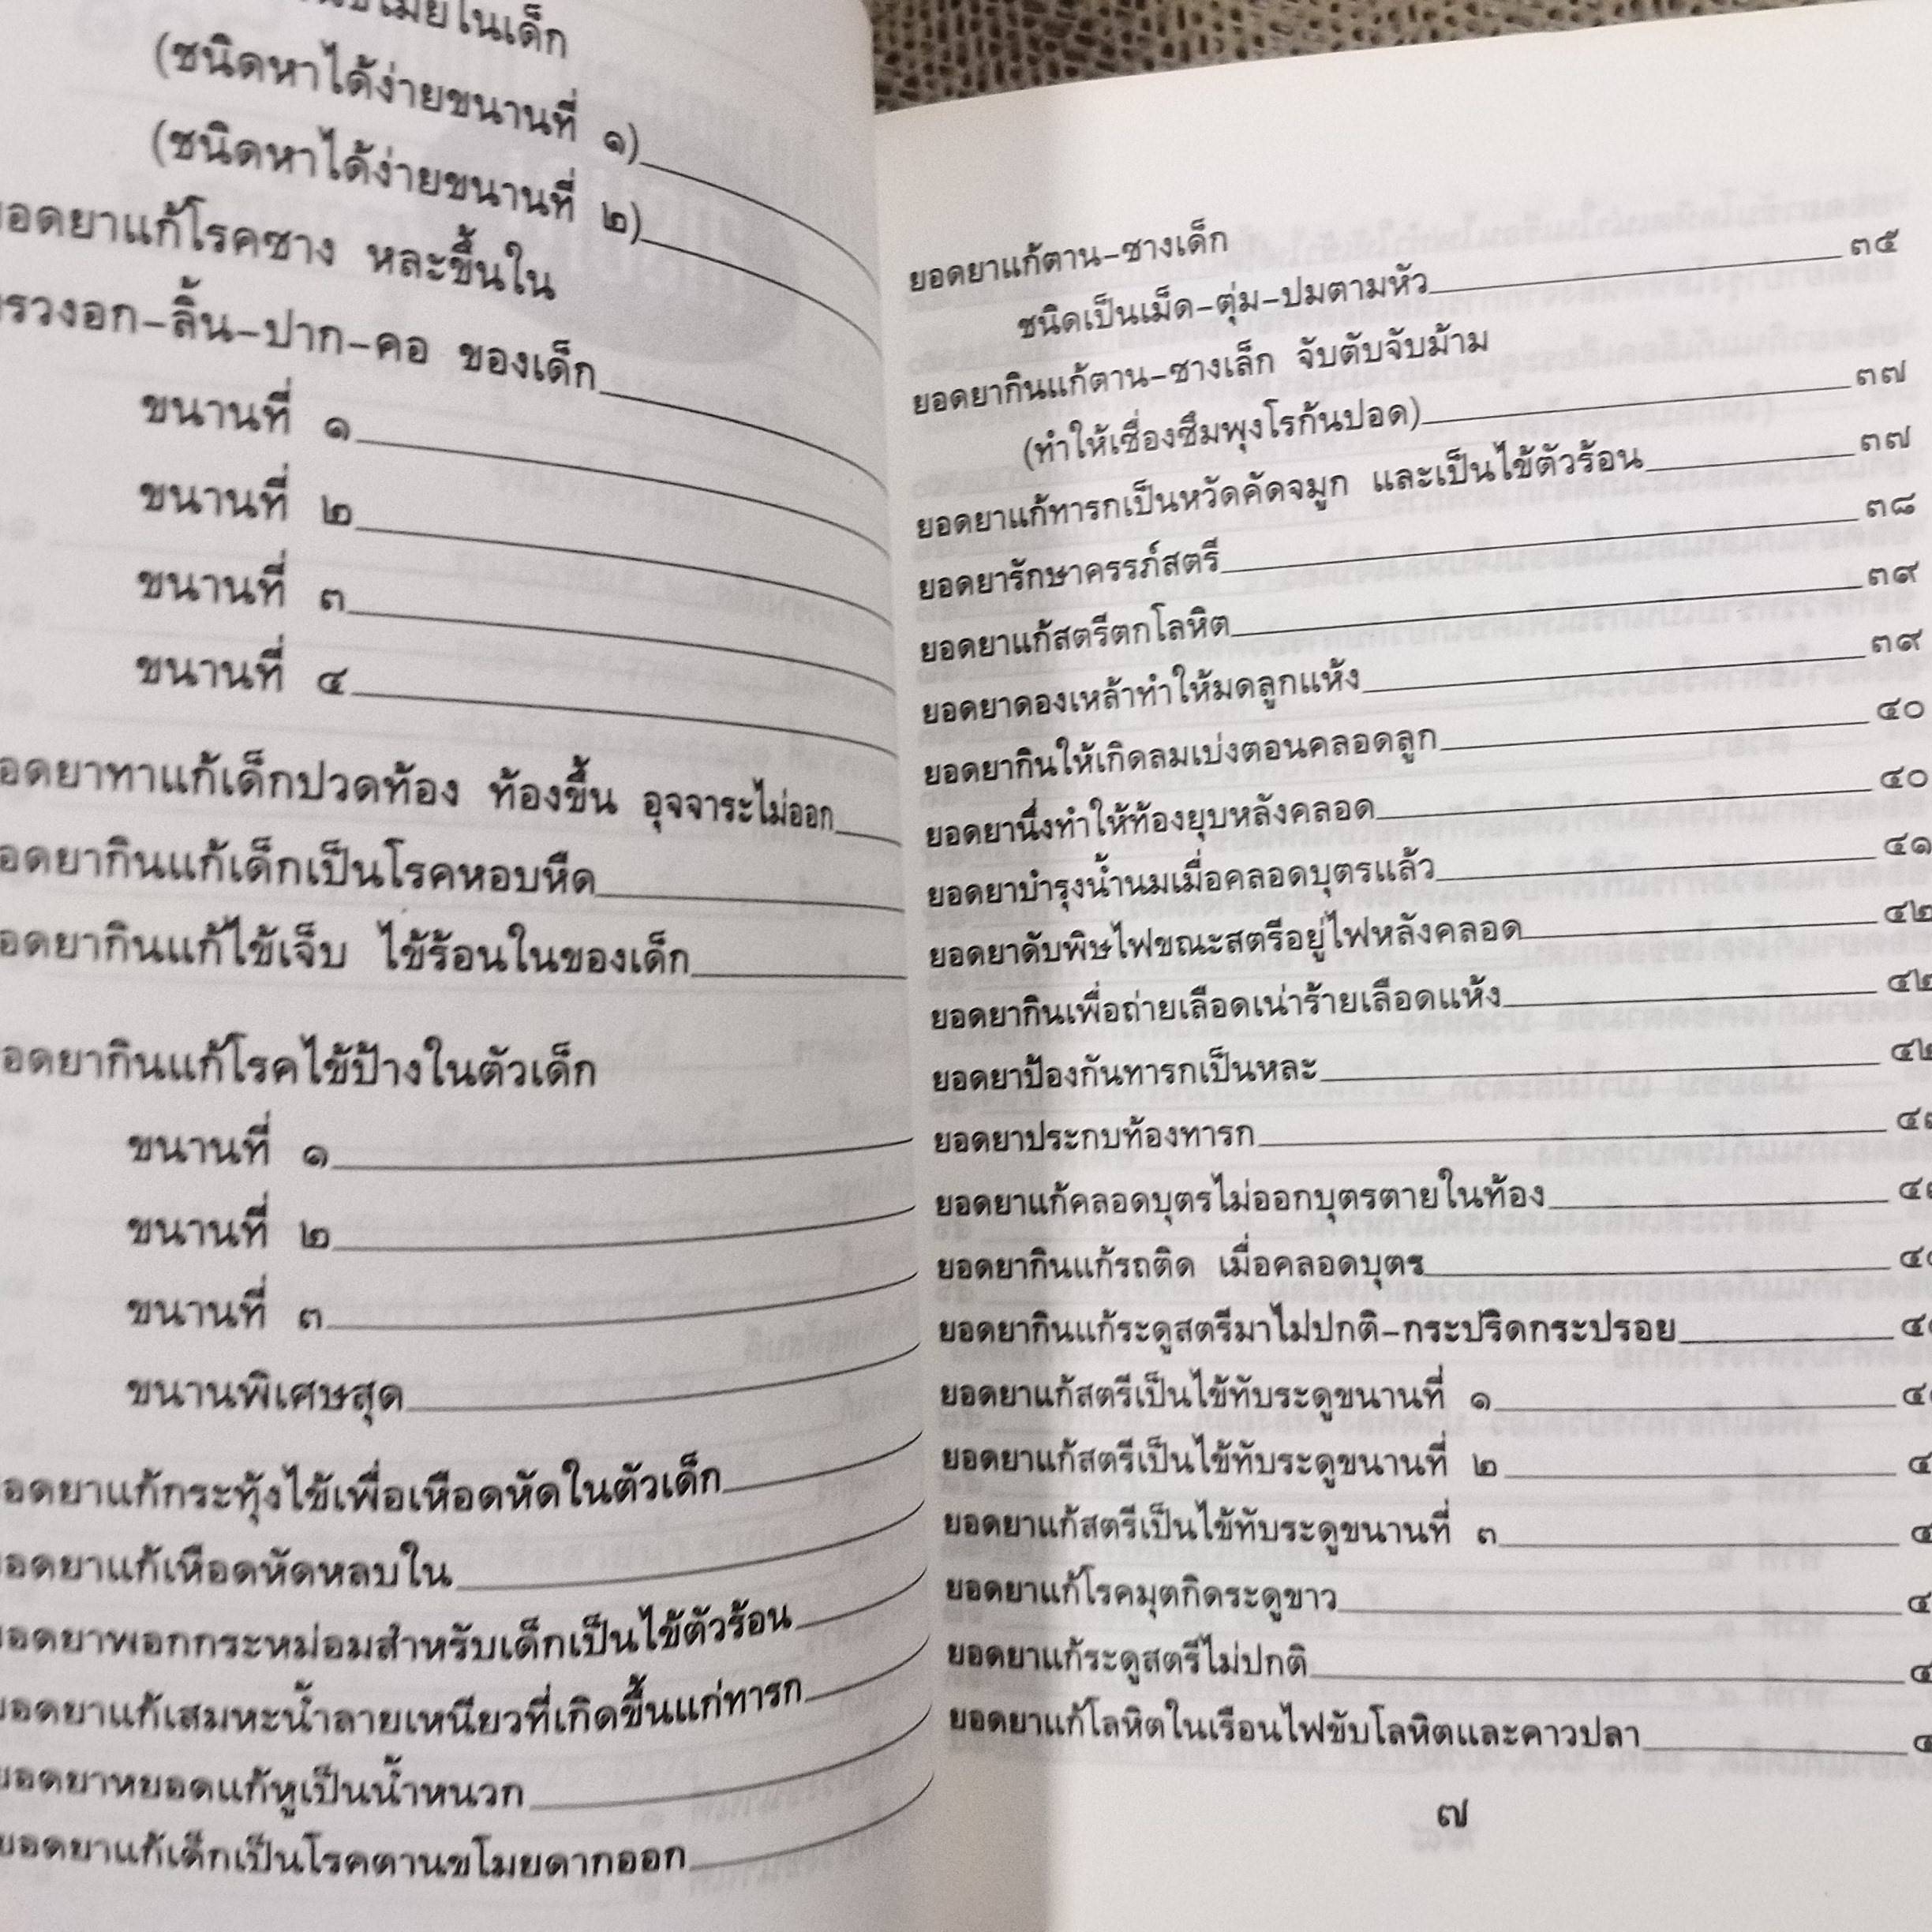 ในเด็ก
(ชนิดหาได้ง่ายขนานที่ ๑)
(ชนิดหาได้ง่ายขนานที่ ๒)
ยอดยาแก้โรคซาง หละขึ้นใน
ทรวงอก-ลิ้น-ปาก-คอ ของเด็ก
ขนานที่ ๑
ขนานที่ ๒
ขนานที่ ๓
ขนานที่ ๔
อดยาทาแก้เด็กปวดท้อง ท้องขึ้น อุจจาระไม่ออก
อดยากินแก้เด็กเป็นโรคหอบหืด
อดยากินแก้ไข้เจ็บ ไข้ร้อนในของเด็ก
อดยากินแก้โรคไข้ป้างในตัวเด็ก
ขนานที่ ๑
ขนานที่ ๒
ขนานที่ ๓
ขนานพิเศษสุด
อดยาแก้กระทุ้งไข้เพื่อเหือดหัดในตัวเด็ก
ยอดยาแก้เหือดหัดหลบใน
ยอดยาพอกกระหม่อมสำหรับเด็กเป็นไข้ตัวร้อน
ยอดยาแก้เสมหะน้ำลายเหนียวที่เกิดขึ้นแก่ทารก
ยอดยาหยอดแก้หูเป็นน้ำหนวก
ยอดยาแก้เด็กเป็นโรคตานขโมยดากออก
ยอดยาแก้ตาน-ซางเด็ก
ชนิดเป็นเม็ด-ตุ่ม-ปมตามหัว ๓๕
ยอดยากินแก้ตาน-ซางเล็ก จับตับจับม้าม
(ทำให้เซื่องซึมพุงโรก้นปอด) ๓๗
ยอดยาแก้ทารกเป็นหวัดคัดจมูก และเป็นไข้ตัวร้อน ๓๗
ยอดยารักษาครรภ์สตรี ๓๘
ยอดยาแก้สตรีตกโลหิต ๓๙
ยอดยาดองเหล้าทำให้มดลูกแห้ง ๓๙
ยอดยากินให้เกิดลมเบ่งตอนคลอดลูก ๔๐
ยอดยานึ่งทำให้ท้องยุบหลังคลอด ๔๐
ยอดยาบำรุงน้ำนมเมื่อคลอดบุตรแล้ว ๔๑
ยอดยาดับพิษไฟขณะสตรีอยู่ไฟหลังคลอด ๔๒
ยอดยากินเพื่อถ่ายเลือดเน่าร้ายเลือดแห้ง ๔๒
ยอดยาป้องกันทารกเป็นหละ ๔๒
ยอดยาประกบท้องทารก ๔
ยอดยาแก้คลอดบุตรไม่ออกบุตรตายในท้อง ๔
ยอดยากินแก้รถติด เมื่อคลอดบุตร ๔
ยอดยากินแก้ระดูสตรีมาไม่ปกติ-กระปริดกระปรอย ๔
ยอดยาแก้สตรีเป็นไข้ทับระดูขนานที่ ๑ ๔
ยอดยาแก้สตรีเป็นไข้ทับระดูขนานที่ ๒ ๔
ยอดยาแก้สตรีเป็นไข้ทับระดูขนานที่ ๓ ๔
ยอดยาแก้โรคมุตกิดระดูขาว ๔
ยอดยาแก้ระดูสตรีไม่ปกติ ๔
ยอดยาแก้โลหิตในเรือนไฟขับโลหิตและคาวปลา
๗